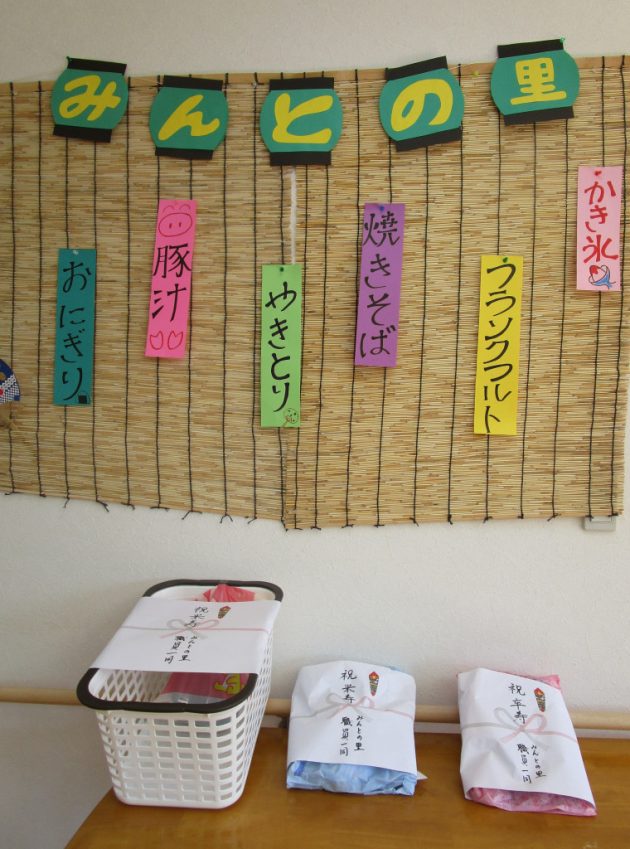 みんとの里
おにぎり
豚汁
やきとり
焼きそば
フランクフルト
かき氷
祝米寿
みんとの里
職員一同
祝米寿
みんとの里
職員一同
祝卒寿
みんとの里
職員一同